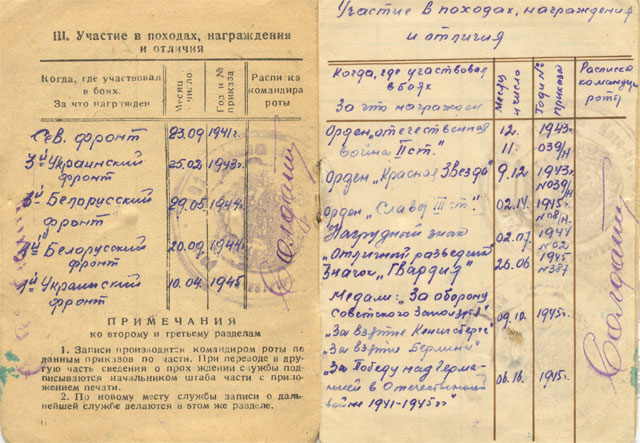 III. Участие в походах, награждения
и отличия
Когда, где участвовал
в боях.
За что награжден
Месяц
число
Год и №
приказа
Расписка
командира
роты
Сев. фронт 23.09 1941г.
3й Украинский 25.02 1943г.
фронт
3й Белорусский 29.05 1944г.
фронт
Белорусский 20.09 1944г.
фронт
1й Украинский 10.04. 1945
фронт
ПРИМЕЧАНИЯ
ко второму и третьему разделам
1. Записи производятся командиром роты по
данным приказов по части. При переводе в дру-
гую часть сведения о прохождении службы под-
писываются начальником штаба части с при-
ложением печати.
2. По новому месту службы записи о даль-
нейшей службе делаются в этом же разделе.
Участие в походах, награждения
и отличия
Когда, где участвовал
в боях
За что награжден
Месяц
число
Год и №
приказа
Расписка
командира
роты
Орден „отечественная 12. 1943г.
война II ст." 11. 039/н
Орден „Красная Звезда" 9.12 1943г.
№039/н
Орден „Слава III ст." 02.14. 1945г.
Нагрудный знак 02.07. 1944
№02
„Отличный разведчик" 1945
Значок „Гвардия" 26.06 №387
Медали: „За оборону
Советского Заполярья" 09.10. 1945г.
„За взятие Кенигсберга"
„За взятие Берлина"
„За Победу над Герма-
нией в Отечественной 06.10. 1945г.
войне 1941-1945гг"